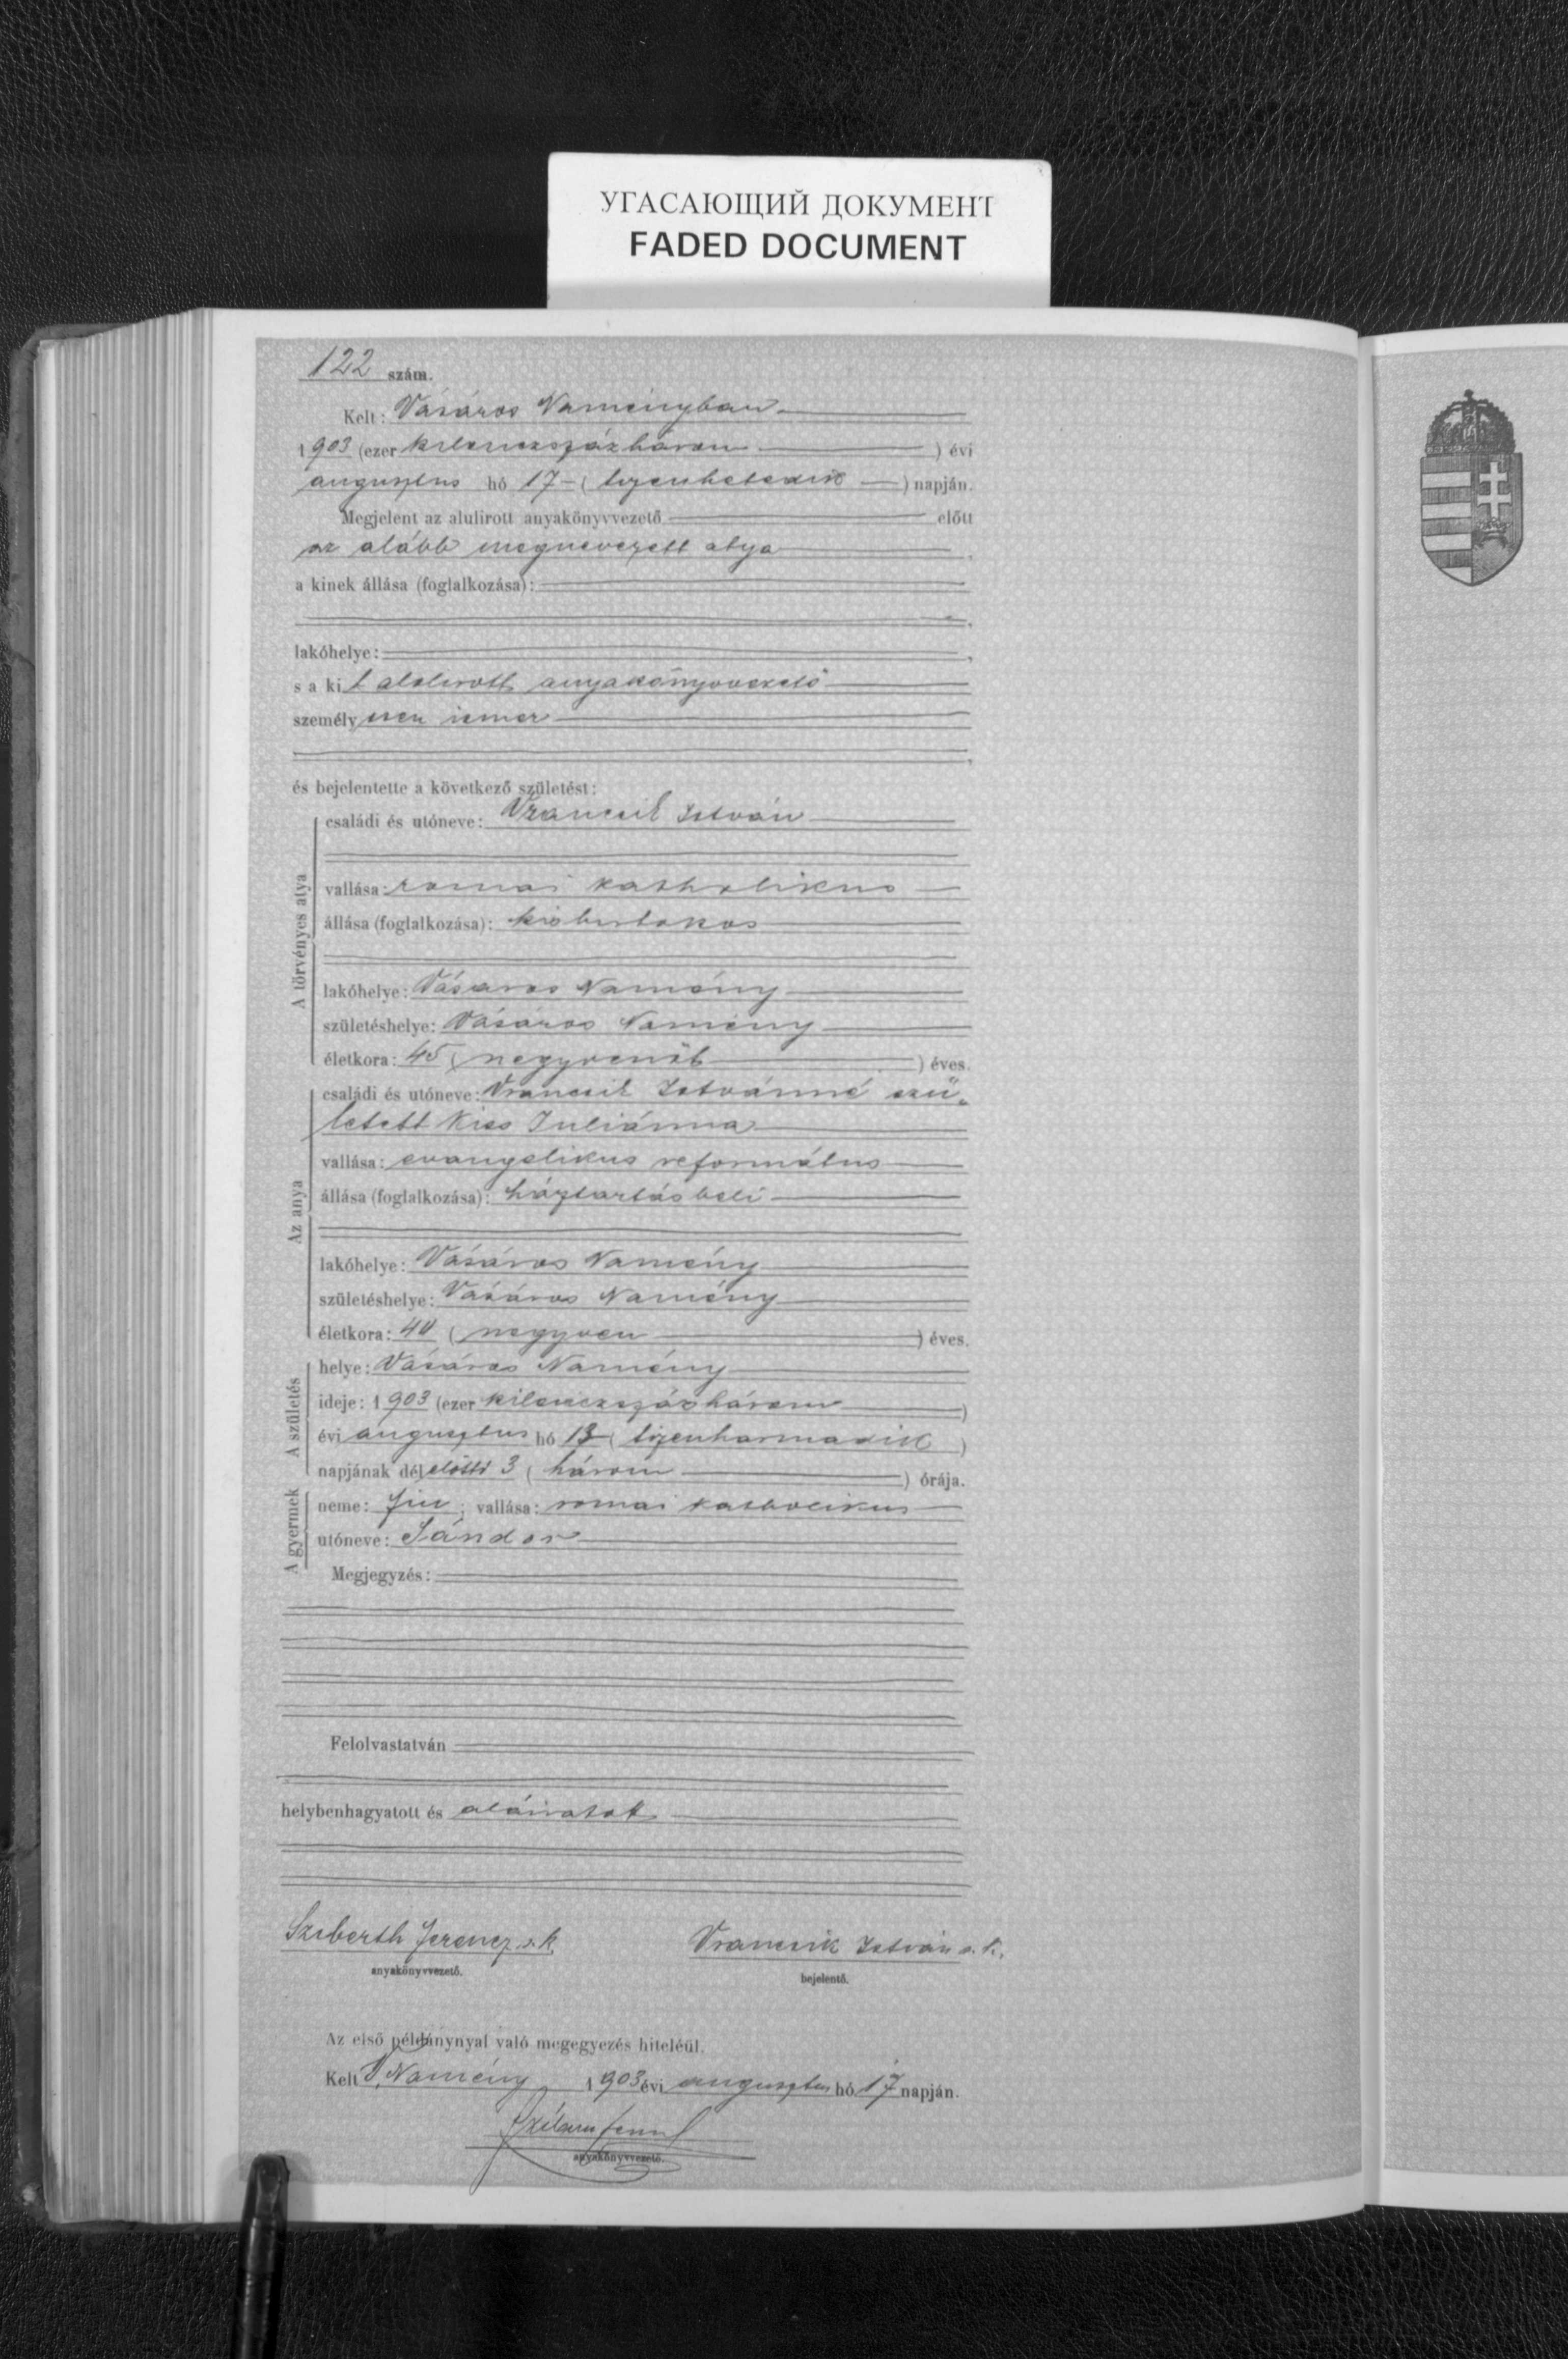 УГАСАЮЩИЙ ДОКУМЕНТ
FADED DOCUMENT
122 szám.
Kelt: Vásáros Naményban
1903 (ezer kilenczszázhárom) évi
augusztus hó 17 (tizenhetedik) napján.
Megjelent az alulirott anyakönyvvezető előtt
az alább megnevezett atya,
a kinek állása (foglalkozása):
lakóhelye:
s a kit alolirott anyakönyvvezető
személyesen ismer
és bejelentette a következő születést:
A törvényes atya
családi és utóneve: Vrancsik István
vallása: romai katholikus
állása (foglalkozása): kisbirtokos
lakóhelye: Vásáros Namény
születéshelye: Vásáros Namény
életkora: 45 (negyvenöt) éves.
Az anya
családi és utóneve: Vrancsik Istvánné szü-
letett Kiss Juliánna
vallása: evangelikus református
állása (foglalkozása): háztartásbeli
lakóhelye: Vásáros Namény
születéshelye: Vásáros Namény
életkora: 40 (negyven) éves.
A születés
helye: Vásáros Namény
ideje: 1903 (ezer kilenczszázhárom)
évi augusztus hó 13 (tizenharmadik)
napjának délelőtti 3 (három) órája.
A gyermek
neme: fiu; vallása: romai katholikus
utóneve: Sándor
Megjegyzés:
Felolvastatván
helybenhagyatott és aláiratott
Ferencz s.k. Vrancsik István s.k.
anyakönyvvezető. bejelentő.
Az első példánynyal való megegyezés hiteléül.
Kelt V. Namény, 1903 évi augusztus hó 17 napján.
anyakönyvvezető.